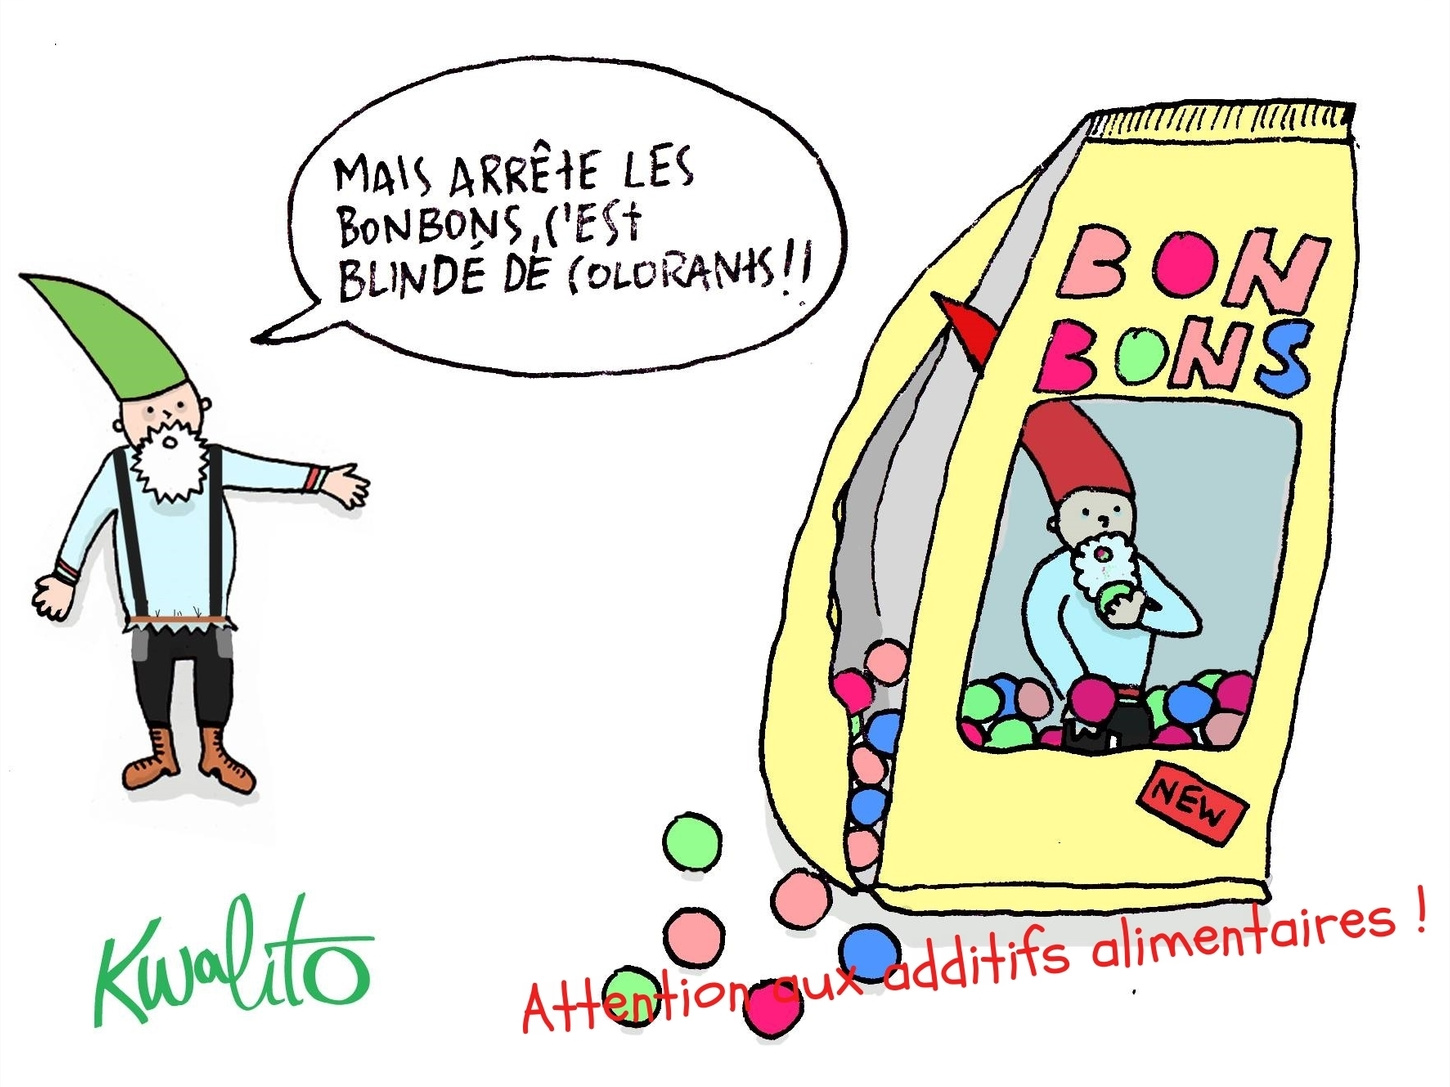 MAIS ARRÊTE LES
BONBONS, C'EST
BLINDÉ DE COLORANTS!!
BON
BONS
NEW
Kwalito
Attention aux additifs alimentaires !